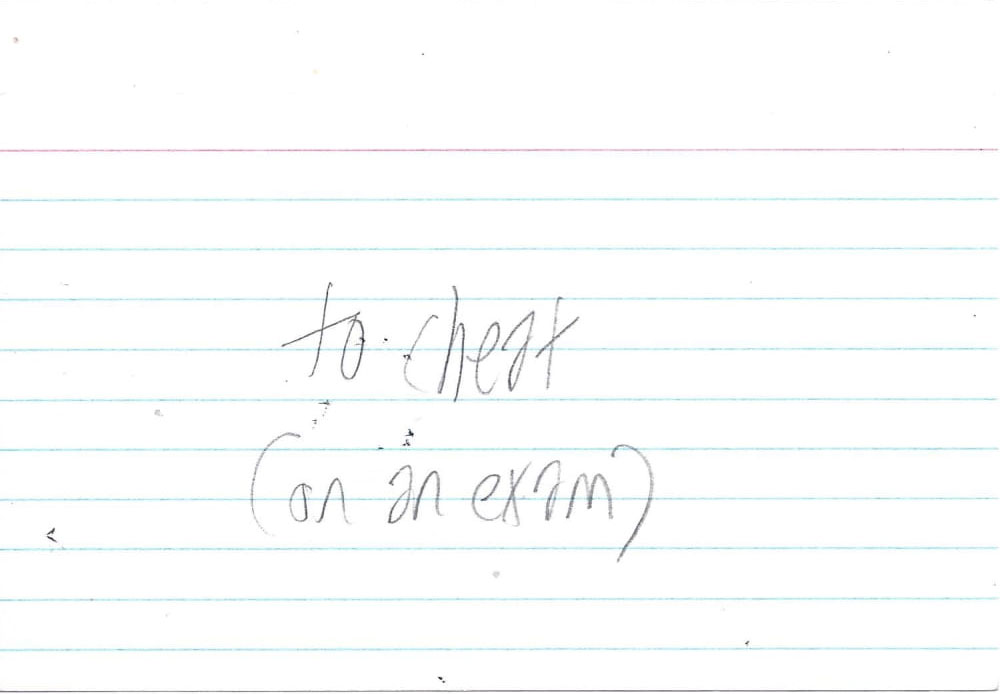 to cheat
(on an exam)